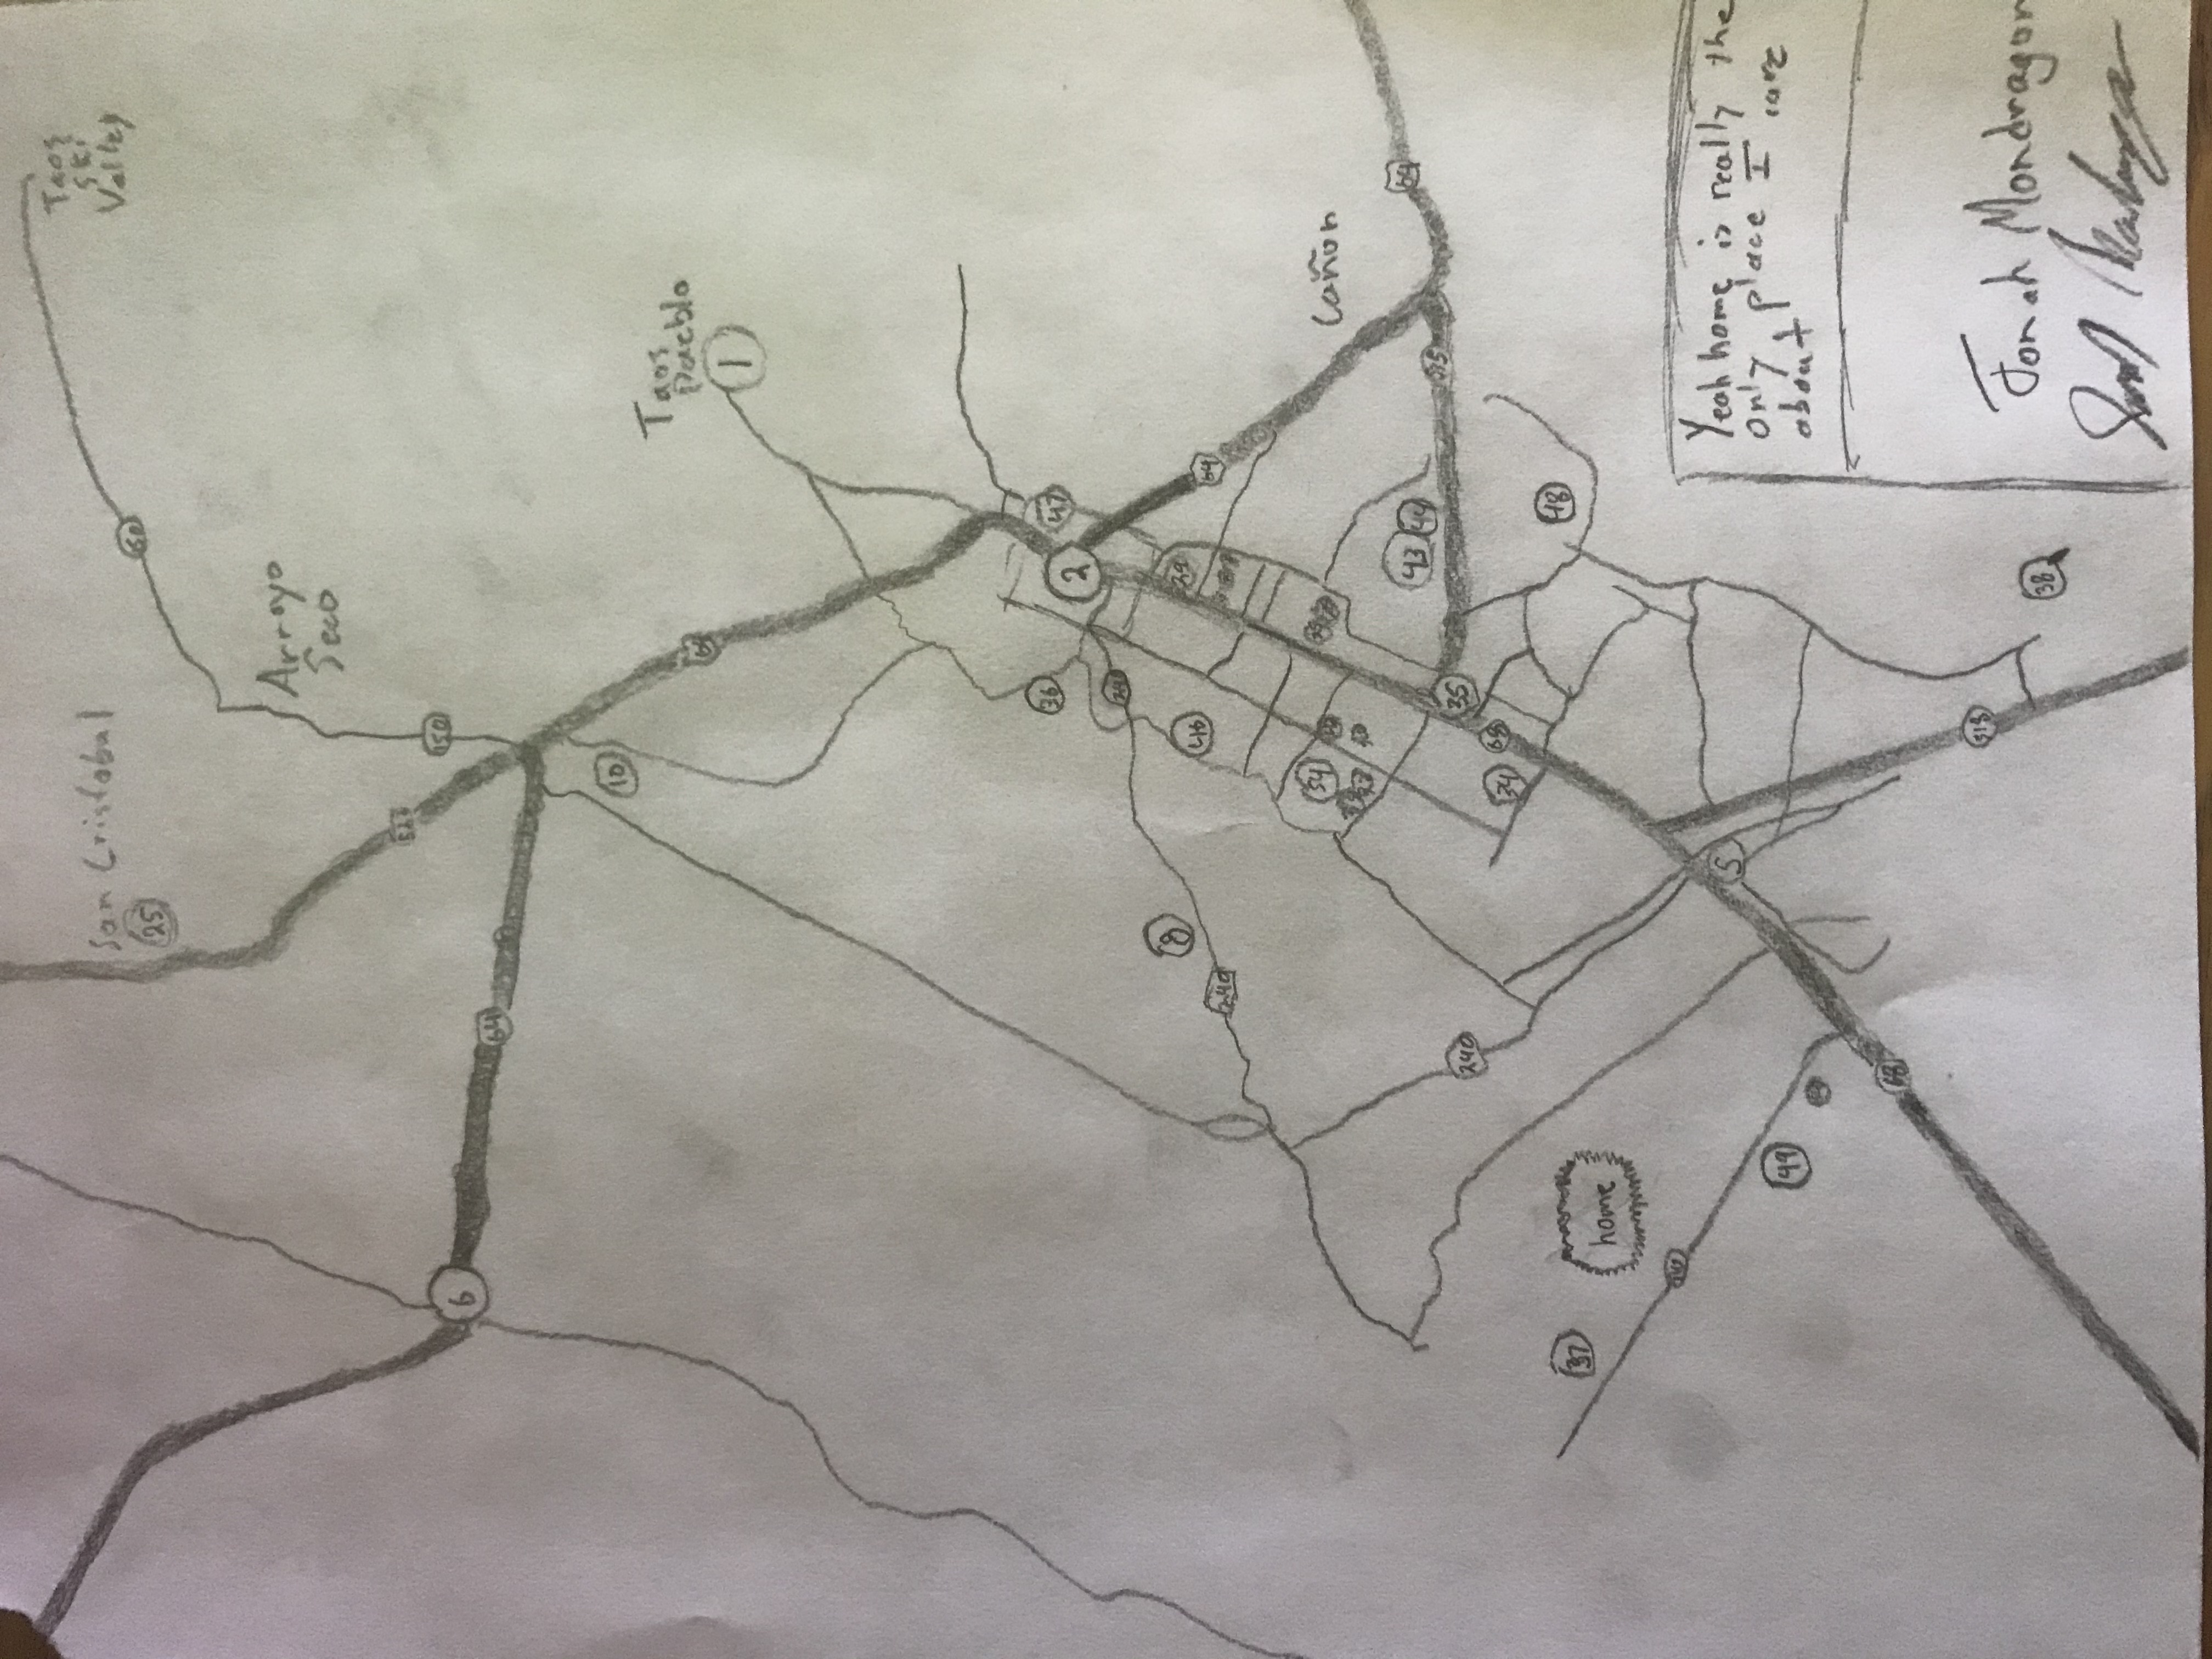 San Cristobal
25
Taos
Ski
Valley
60
Arroyo
Seco
150
6
64
10
64
Taos
Pueblo
1
36
2
47
8
240
46
29
64
54
Cañon
43
44
64
35
240
68
34
48
37
home
5
49
68
518
38
Yeah home is really the
only place I care
about
Jonah Mondragon